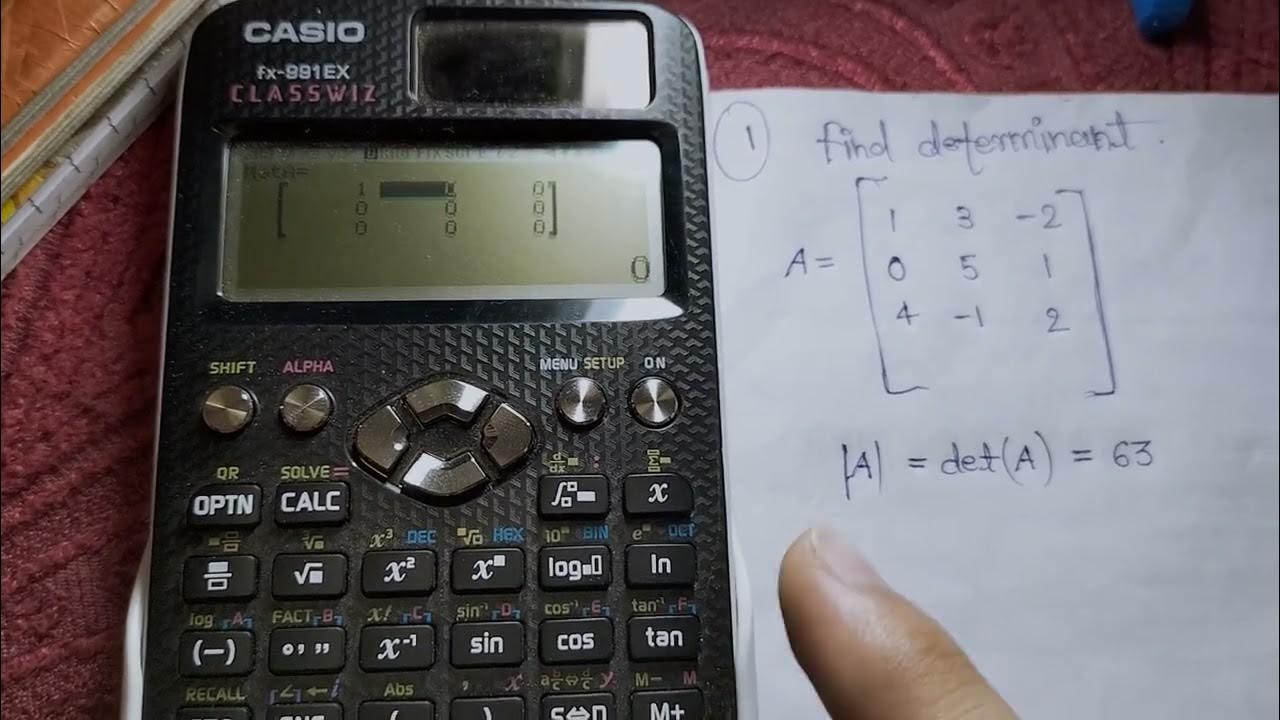 CASIO
fx-991EX
CLASSWIZ
MatA=
1 0 0
0 0 0
0 0 0
0
SHIFT ALPHA MENU SETUP ON
QR SOLVE = d/dx : Σ
OPTN CALC ∫ x
x³ DEC HEX 10 BIN e OCT
√ x² x log ln
log A FACT B x! C sin⁻¹ D cos⁻¹ E tan⁻¹ F
(−) ° ’ ” x⁻¹ sin cos tan
RECALL ∠ ←i Abs , x a b/c⇔d/c y M− M
( ) S⇔D M+
1 find determinant.
A = [ 1 3 -2
0 5 1
4 -1 2 ]
|A| = det(A) = 63